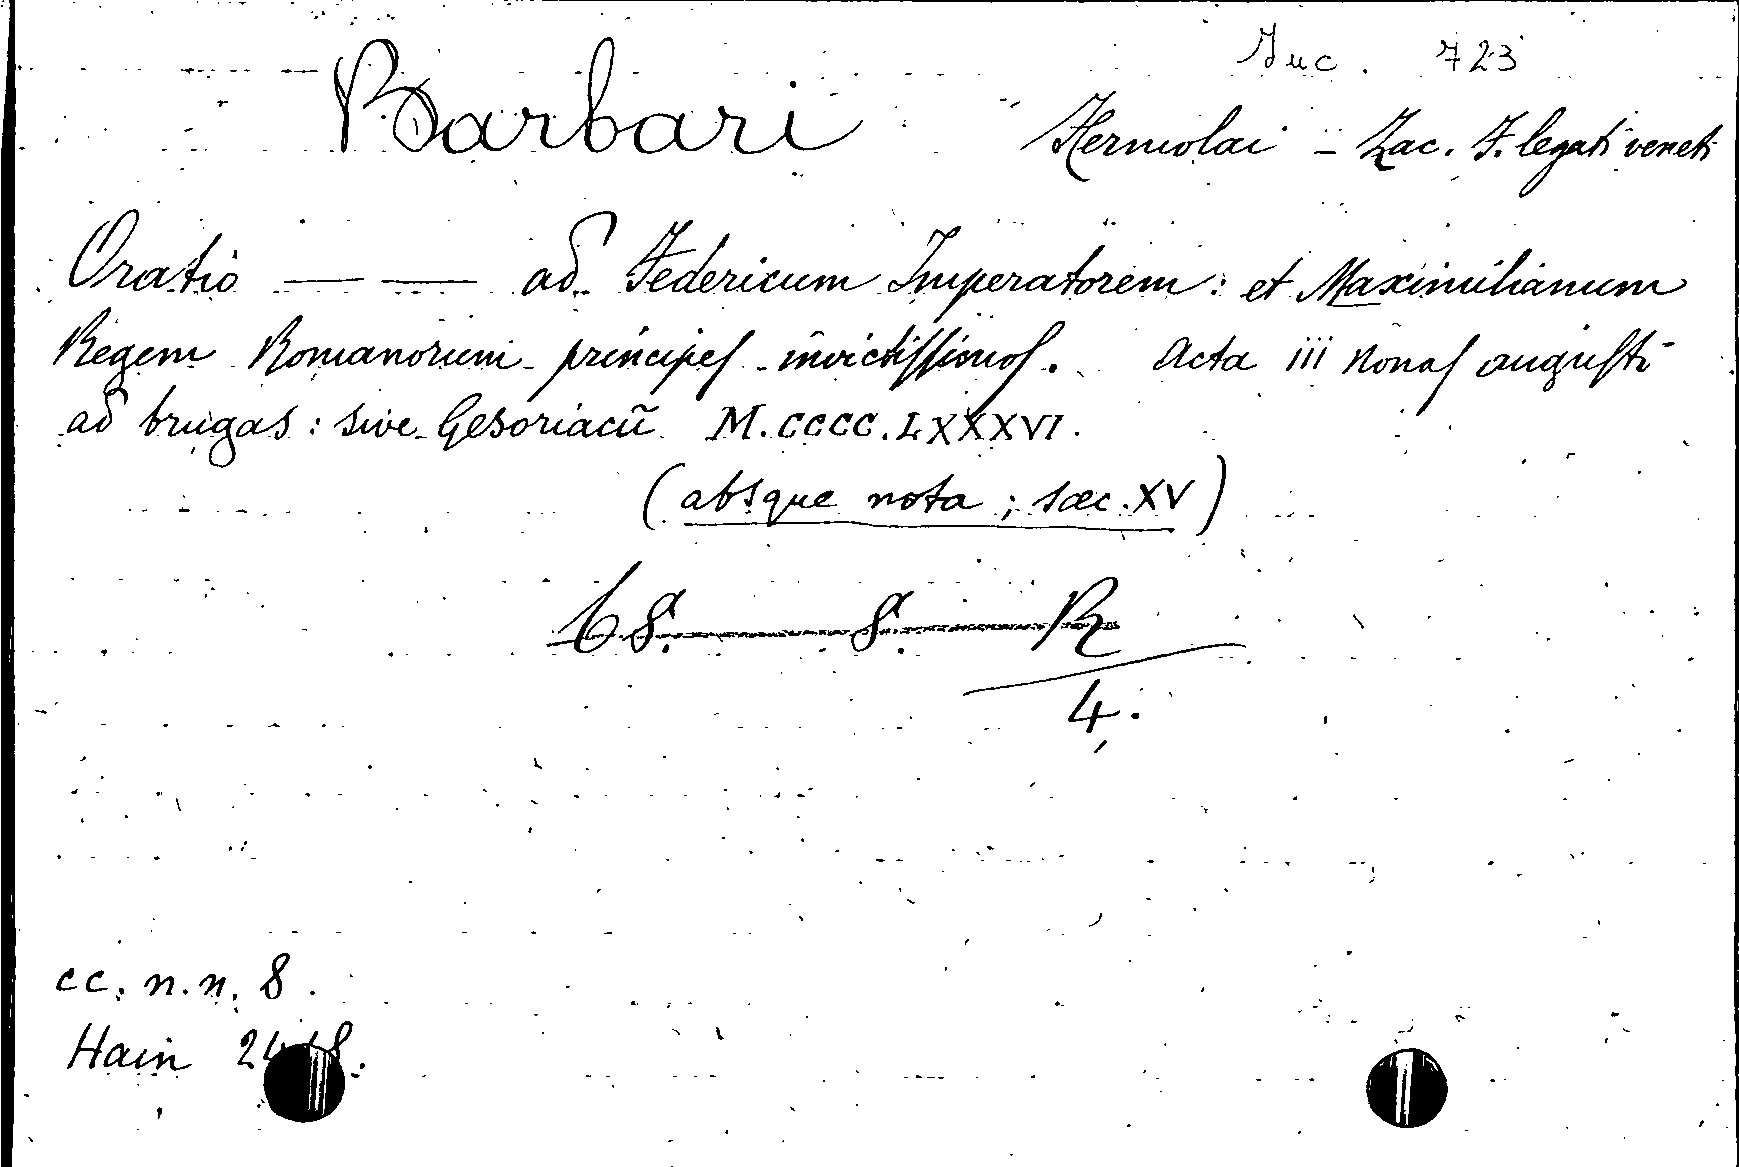 Inc. 723
Barbari Hermolai - Zac. F. legati veneti
Oratio — — ad Federicum Imperatorem: et Maximilianum
Regem Romanorum principeſ invictiſſimoſ. Acta iii nonaſ auguſti
ad brugas: sive Gesoriacū M.CCCC.LXXXVI.
(absque nota; sæc. XV)
68. — 8. — R
4.
cc. n.n. 8.
Hain